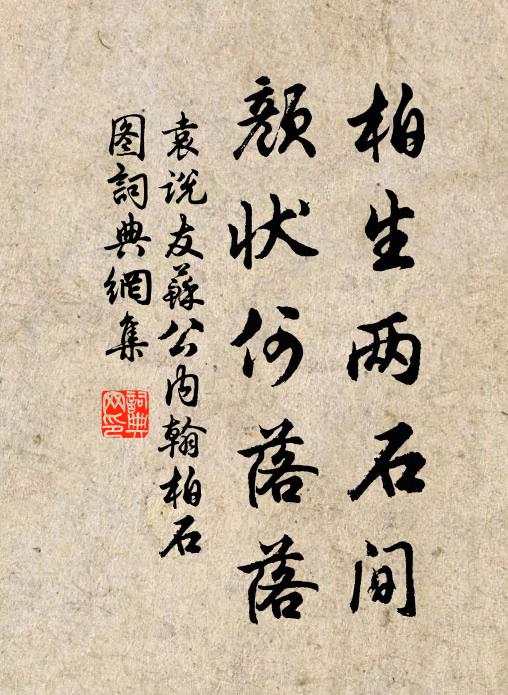 柏生两石间
颜状何落落
袁说友蘇公内翰柏石
图詞典網集
詞典
网印